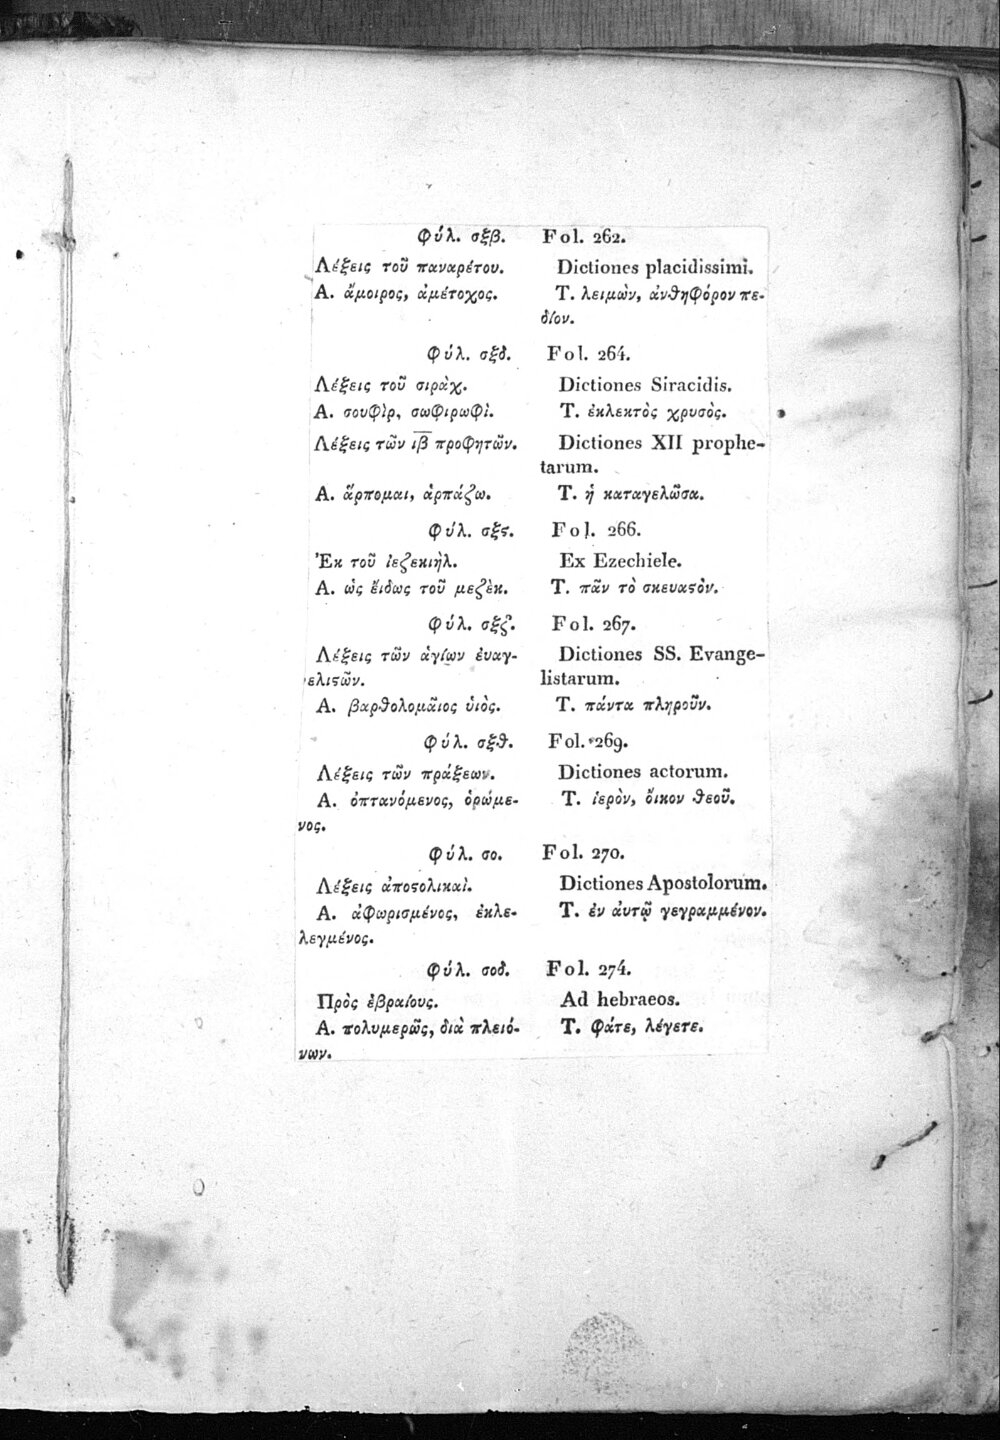 Φύλ. σξβ. Fol. 262.
Λέξεις τοῦ παναρέτου. Dictiones placidissimi.
Α. ἄμοιρος, ἀμέτοχος. Τ. λειμὼν, ἀνθηφόρον πε-
δίον.
Φύλ. σξδ. Fol. 264.
Λέξεις τοῦ σιράχ. Dictiones Siracidis.
Α. σουφὶρ, σωφιρωφὶ. Τ. ἐκλεκτὸς χρυσὸς.
Λέξεις τῶν ιβ προφητῶν. Dictiones XII prophe-
tarum.
Α. ἅρπομαι, ἁρπάζω. Τ. ἡ καταγελῶσα.
Φύλ. σξϛ. Fol. 266.
Ἐκ τοῦ ἰεζεκιὴλ. Ex Ezechiele.
Α. ὡς ἔιδως τοῦ μεζὲκ. Τ. πᾶν τὸ σκευαϛὸν.
Φύλ. σξζ. Fol. 267.
Λέξεις τῶν ἁγίων ἐυαγ- Dictiones SS. Evange-
ελιϛῶν. listarum.
Α. βαρθολομαῖος ὑιὸς. Τ. πάντα πληροῦν.
Φύλ. σξθ. Fol. 269.
Λέξεις τῶν πράξεων. Dictiones actorum.
Α. ὀπτανόμενος, ὁρώμε- Τ. ἱερὸν, ὄικον θεοῦ.
νος.
Φύλ. σο. Fol. 270.
Λέξεις ἀποϛολικαὶ. Dictiones Apostolorum.
Α. ἀφωρισμένος, ἐκλε- Τ. ἐν ἀυτῷ γεγραμμένον.
λεγμένος.
Φύλ. σοδ. Fol. 274.
Πρὸς ἑβραίους. Ad hebraeos.
Α. πολυμερῶς, διὰ πλειό- Τ. φάτε, λέγετε.
νων.